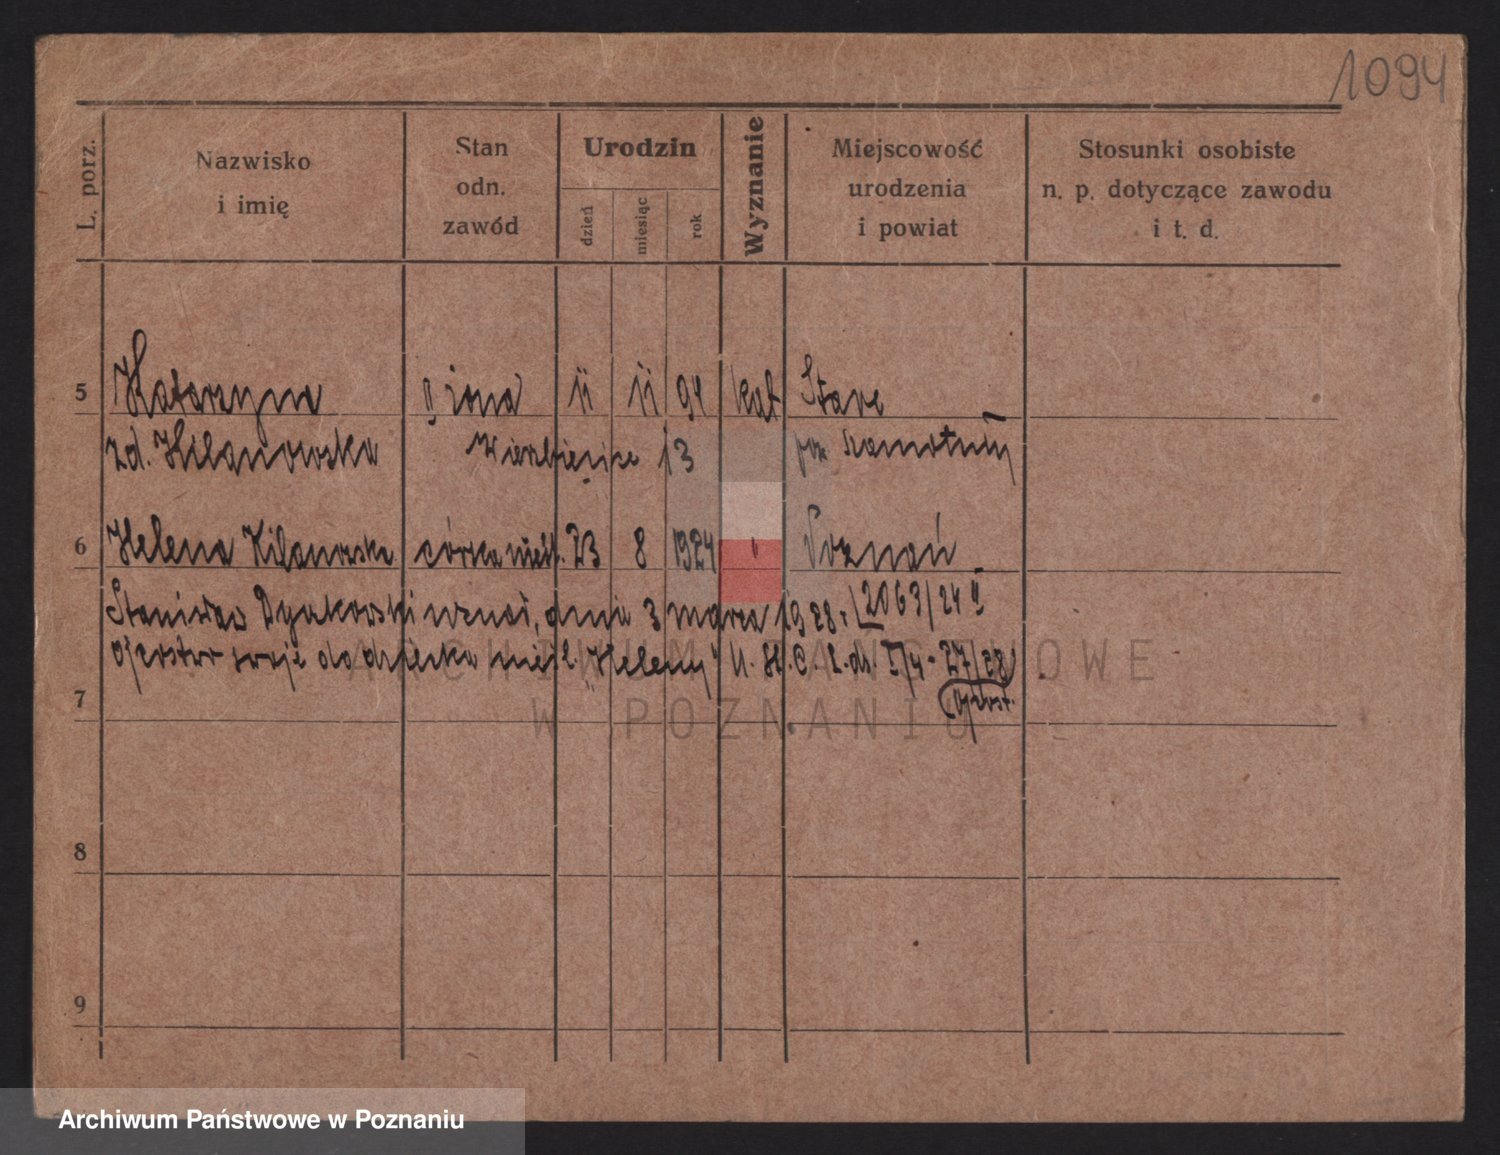 1094
L. porz.
Nazwisko
i imię
Stan
odn.
zawód
Urodzin
dzień
miesiąc
rok
Wyznanie
Miejscowość
urodzenia
i powiat
Stosunki osobiste
n. p. dotyczące zawodu
i t. d.
5 Katarzyna II żona 11 11 94 kat Stare
zd. Kilanowska 13 Szamotuły
6 Helena Kilanowska córka nieśl. 23 8 1924 " Poznań
Stanisław uznał dnia 3 marca 1928 r. 2063/24
ojcostwo swoje do dziecka nieśl. "Heleny" U. St. C. L. dz. I/4 - 27/28
7 ojcost.
8
9
ARCHIWUM PAŃSTWOWE
W POZNANIU
Archiwum Państwowe w Poznaniu